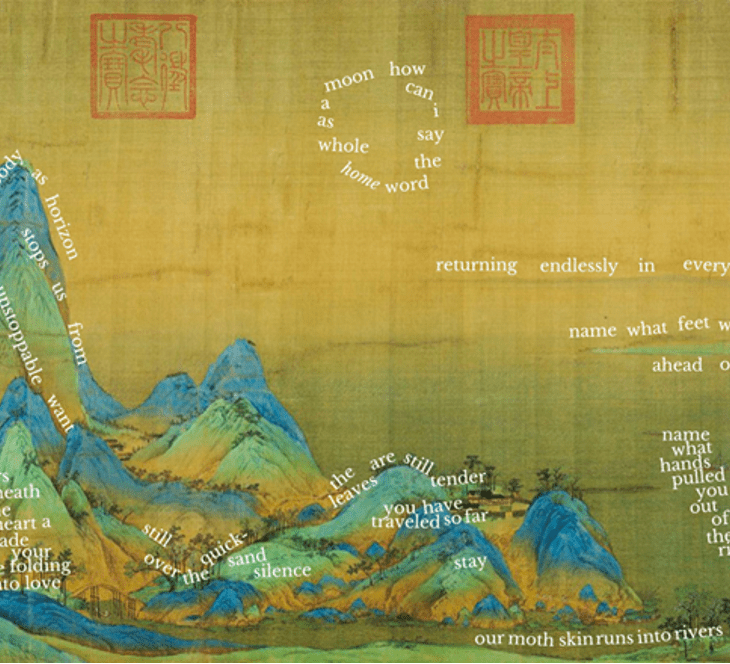 八徵耄念之寶
太上皇帝之寶
how can i say the word home whole as a moon
as horizon
stops us from
unstoppable want
returning endlessly in every
name what feet
ahead
name
what
hands
pulled
you
out
of
heart a
your
folding
love
the leaves are still tender
you have
traveled so far
still over the quick-
sand
silence
stay
our moth skin runs into rivers